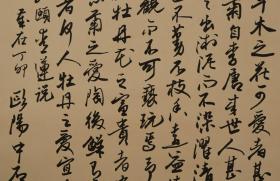 草木之花可
菊自李唐来世人甚
之出淤泥而不染濯清
不蔓不枝香遠益
觀而不可褻玩焉予
牡丹花之富貴者
菊之愛陶後鮮有
者何人牡丹之愛宜
頤愛蓮説
丁卯 歐陽中石